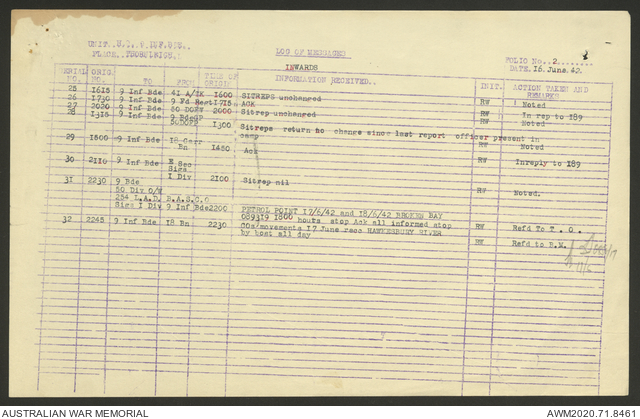 LOG OF MESSAGES
INWARDS
FOLIO No. 2
DATE. 16 June. 42.
SERIAL NO. ORIG NO. TO FROM TIME OF ORIGIN INFORMATION RECEIVED.. INIT. ACTION TAKEN AND REMARKS
25 1615 9 Inf Bde 41 A/TK 1600 SITREPS unchanged RW Noted
26 1730 9 Inf Bde 9 Fd Regt 1715 ACK RW In rep to 189
27 2020 9 Inf Bde 2000 Sitrep unchanged RW Noted
28 1315 9 Inf Bde 1300 Sitreps return no change since last report officer present in camp RW Noted
29 1500 9 Inf Bde 18 Garr Bn 1450 Ack RW Inreply to 189
30 2110 9 Inf Bde E Sec Sigs I Div 2100 Sitrep nil RW Noted.
31 2230 9 Bde
50 Div O/W
254 L.A.D. B.A.S.C.O
Sigs I Div 9 Inf Bde 2200 PETROL POINT 17/6/42 and 18/6/42 BROKEN BAY
089319 1800 hours stop Ack all informed stop RW Refd To T. O.
32 2245 9 Inf Bde 18 Bn 2230 COs/movements 17 June recc HAWKESBURY RIVER
by boat all day RW Refd to B.M.
17/6
AUSTRALIAN WAR MEMORIAL
AWM2020.71.8461